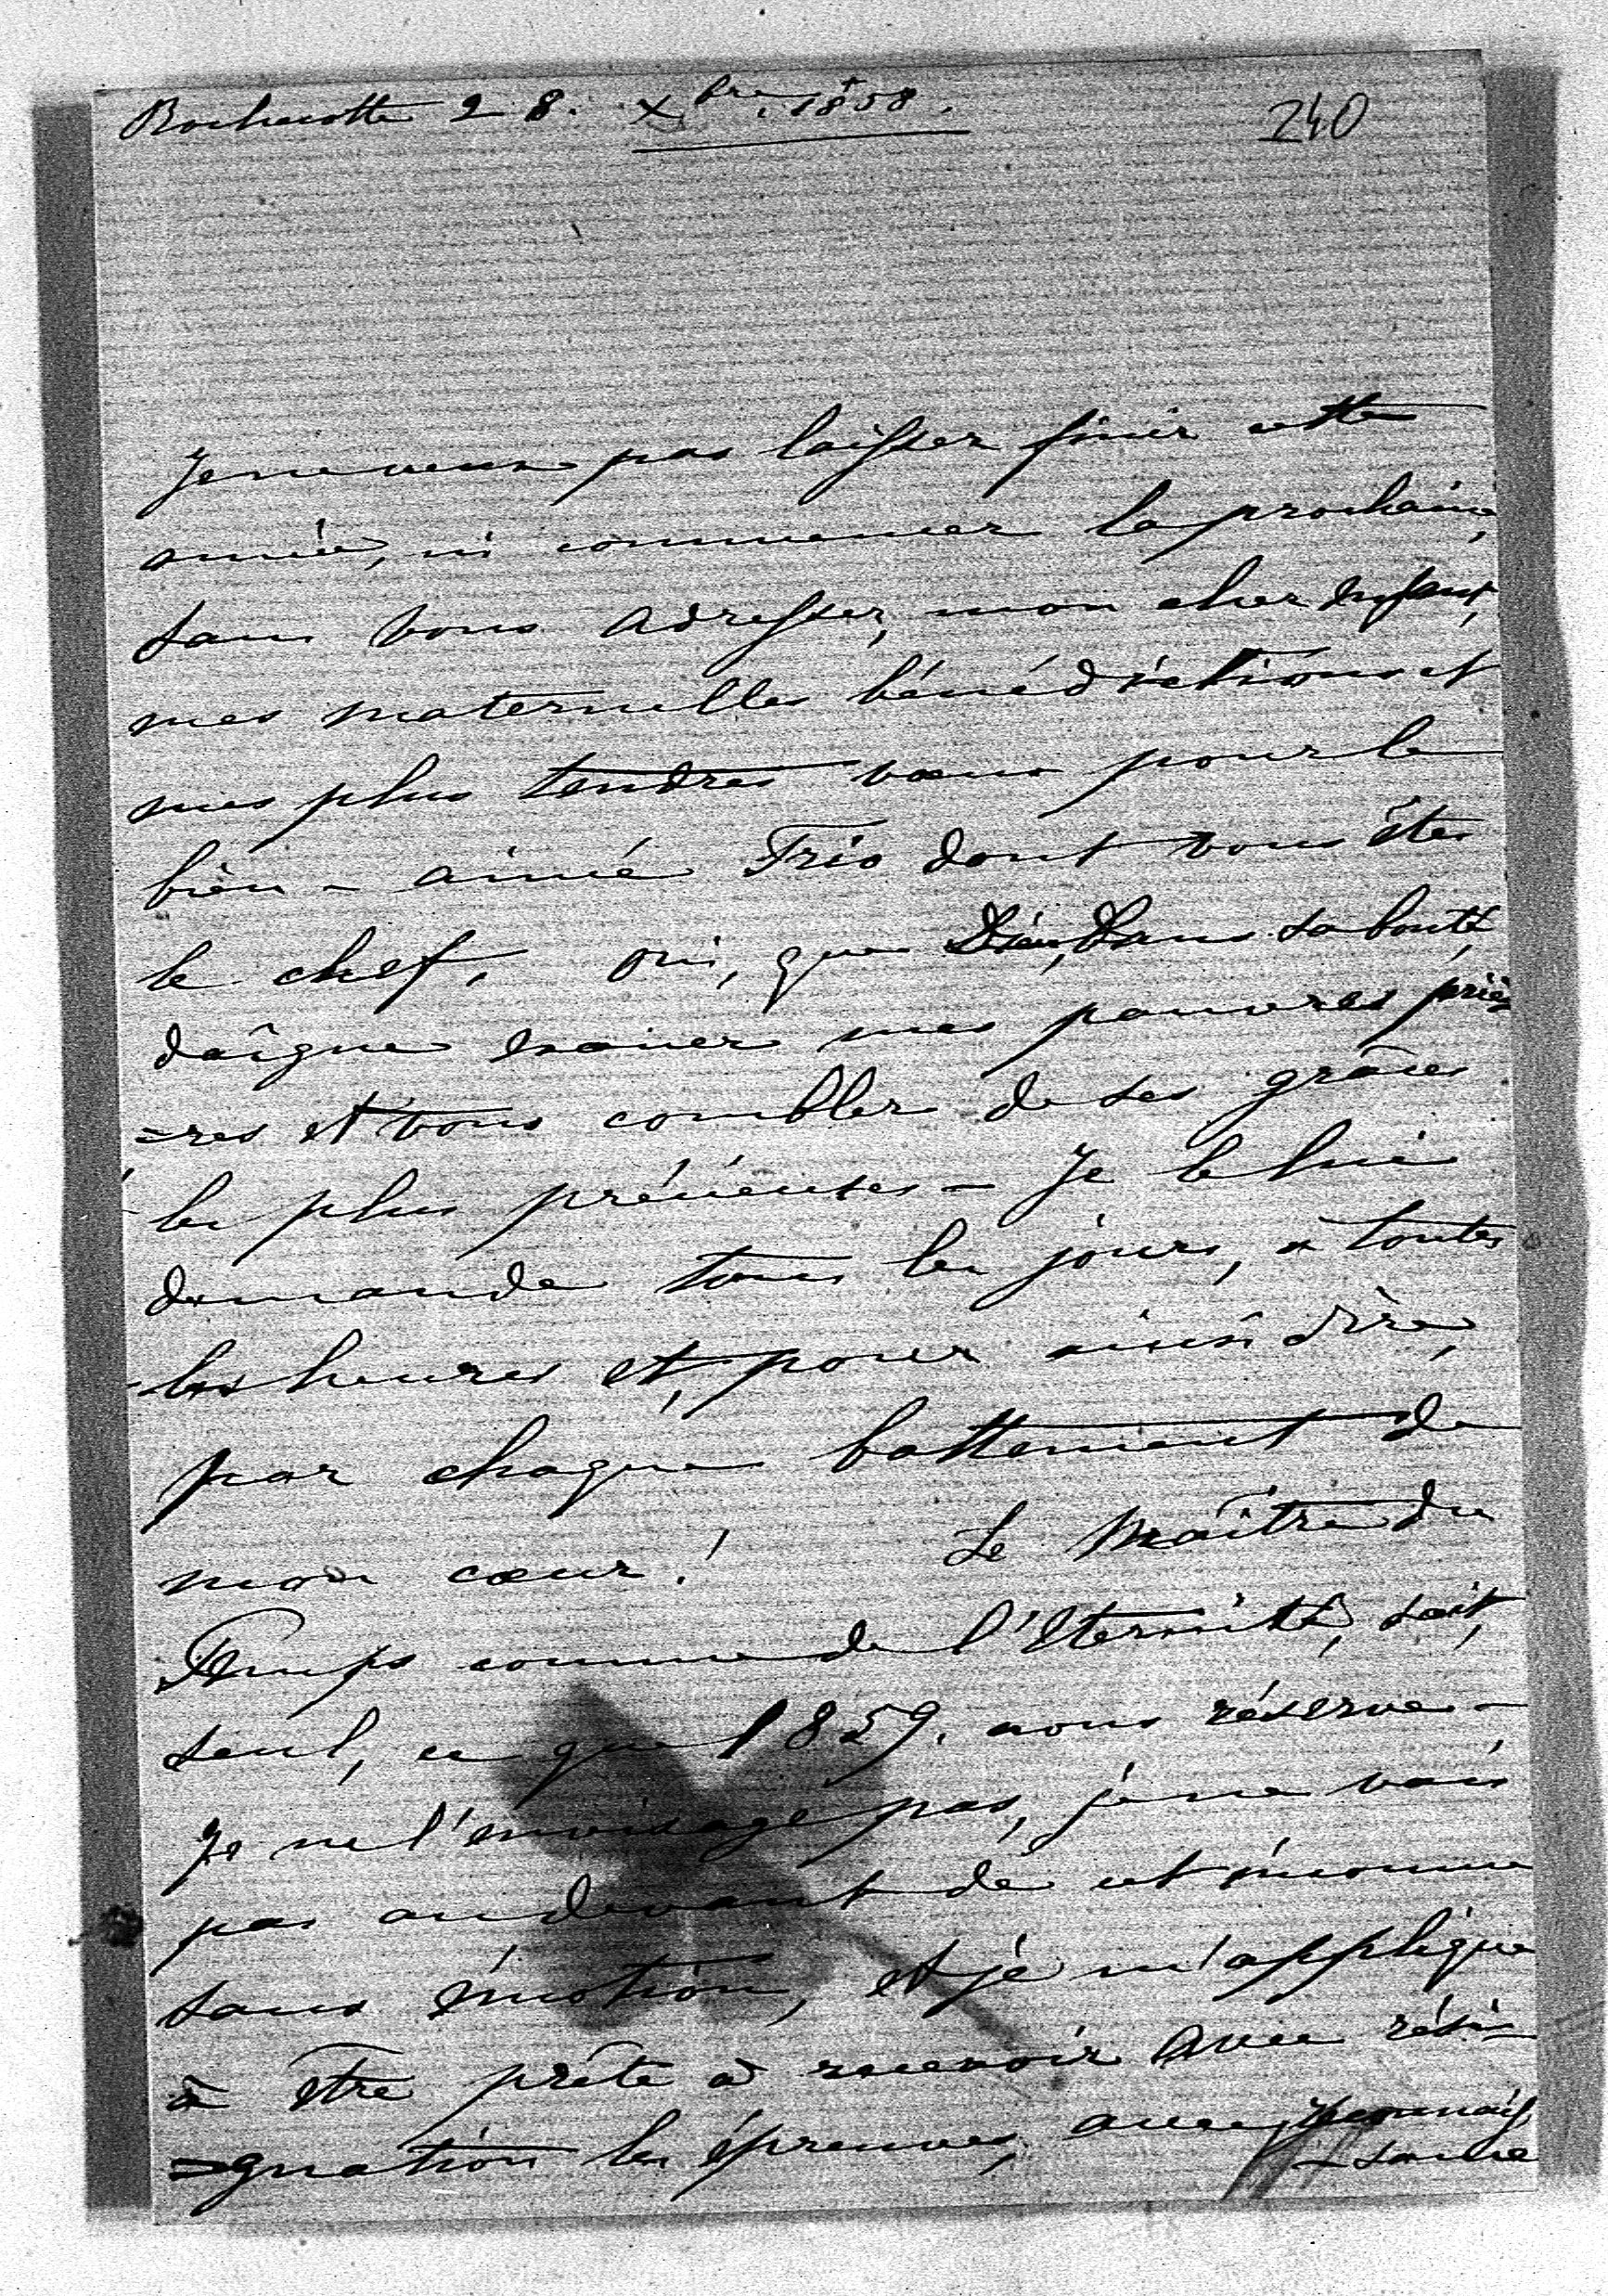 Rochecotte 28. Xbre 1858.
240
Je ne veux pas laisser finir cette
année, ni commencer la prochaine,
sans vous adresser, mon cher Enfant,
mes maternelles bénédictions et
mes plus tendres vœux pour le
bien-aimé Trio dont vous êtes
le chef. Oui, que Dieu, Dans sa bonté,
daîgne exaucer mes pauvres priè
=res et vous combler de ses grâces
les plus précieuses – Je le lui
demande tous les jours, à toutes
les heures et, pour ainsi dire,
par chaque battement de
mon cœur! Le Maître du
Temps comme de l'Eternité, sait,
seul, ce que 1859. nous réserve –
Je ne l'envisage pas, je ne vais
pas audevant de cet inconnu
sans émotion, et je m'applique
à être prête à recevoir avec rési=
=gnation les épreuves, avec reconnais
=sance